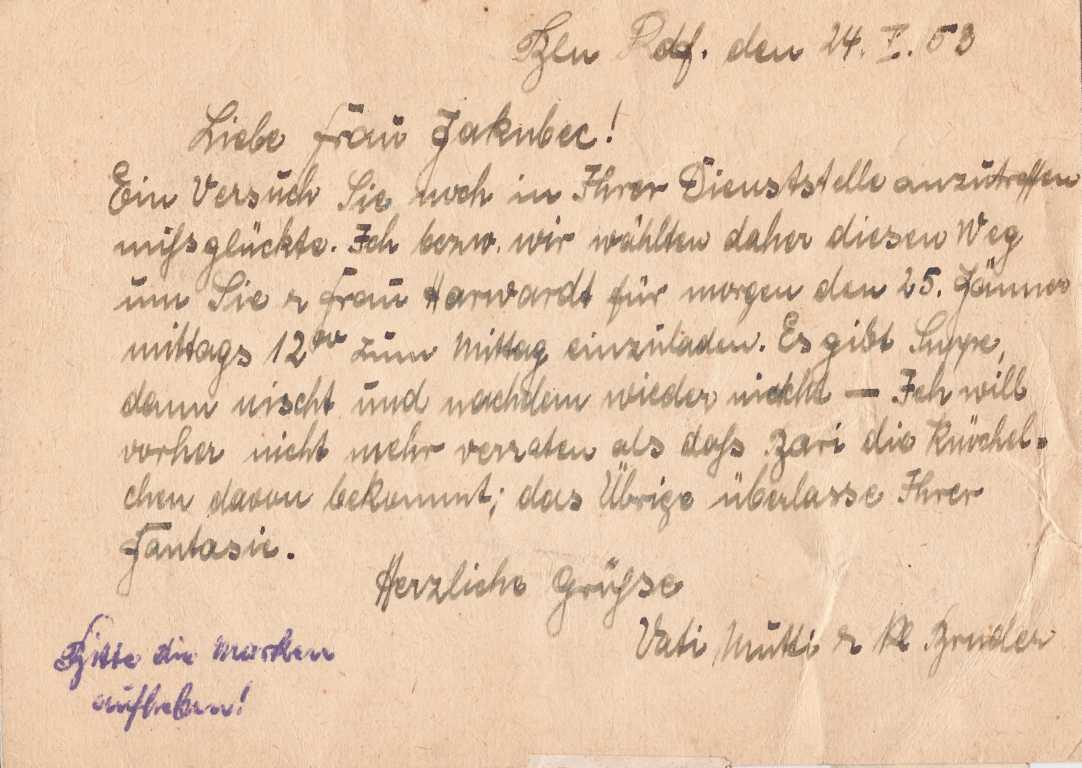 Bln Rdf. den 24. I. 53
Liebe Frau Jakubec!
Ein Versuch Sie noch in Ihrer Dienststelle anzutreffen
missglückte. Ich bezw. wir wählten daher diesen Weg
um Sie & Frau Harwardt für morgen den 25. Jänner
mittags 12 zum Mittag einzuladen. Es gibt Suppe,
dann nischt und nachdem wieder nichts — Ich will
vorher nicht mehr verraten als dass Bari die Knöchel-
chen davon bekommt; das Übrige überlasse Ihrer
Fantasie.
Herzliche Grüsse
Vati, Mutti & kl. Bruder
Bitte die Marken
aufheben!